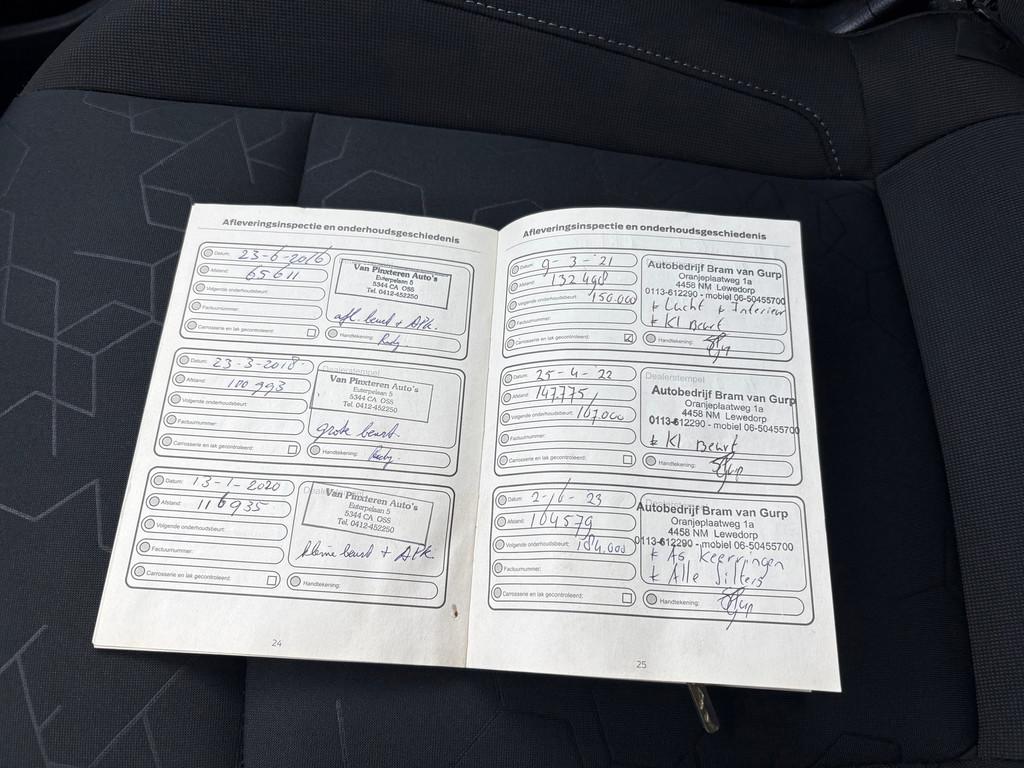 Afleveringsinspectie en onderhoudsgeschiedenis
Datum: 23-6-2016
Afstand: 65611
Volgende onderhoudsbeurt:
Factuurnummer:
Carrosserie en lak gecontroleerd:
Van Pinxteren Auto's
Euterpelaan 5
5344 CA OSS
Tel. 0412-452250
afl. beurt + APK.
Handtekening:
Datum: 23-3-2018
Afstand: 100993
Volgende onderhoudsbeurt:
Factuurnummer:
Carrosserie en lak gecontroleerd:
Dealerstempel
Van Pinxteren Auto's
Euterpelaan 5
5344 CA OSS
Tel. 0412-452250
grote beurt.
Handtekening:
Datum: 13-1-2020
Afstand: 116935
Volgende onderhoudsbeurt:
Factuurnummer:
Carrosserie en lak gecontroleerd:
Van Pinxteren Auto's
Euterpelaan 5
5344 CA OSS
Tel. 0412-452250
kleine beurt + APK
Handtekening:
24
Afleveringsinspectie en onderhoudsgeschiedenis
Datum: 9-3-'21
Afstand: 132498
Volgende onderhoudsbeurt: 150.000
Factuurnummer:
Carrosserie en lak gecontroleerd:
Autobedrijf Bram van Gurp
Oranjeplaatweg 1a
4458 NM Lewedorp
0113-612290 - mobiel 06-50455700
* Lucht * Interieur
* Kl Beurt
Handtekening:
Datum: 25-4-22
Afstand: 147.775
Volgende onderhoudsbeurt: 167.000
Factuurnummer:
Carrosserie en lak gecontroleerd:
Dealerstempel
Autobedrijf Bram van Gurp
Oranjeplaatweg 1a
4458 NM Lewedorp
0113-612290 - mobiel 06-50455700
* Kl Beurt
Handtekening:
Datum: 2-10-23
Afstand: 164579
Volgende onderhoudsbeurt: 184.000
Factuurnummer:
Carrosserie en lak gecontroleerd:
Autobedrijf Bram van Gurp
Oranjeplaatweg 1a
4458 NM Lewedorp
0113-612290 - mobiel 06-50455700
* As Keerringen
* Alle filters
Handtekening:
25